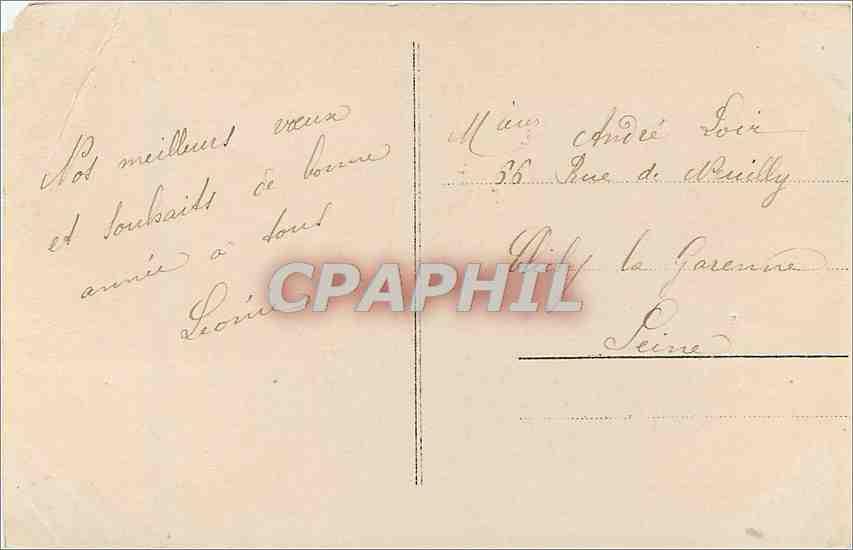 Nos meilleurs vœux
et souhaits de bonne
année à tous
Léonie
André Loir
66 Rue de Neuilly
Clichy la Garenne
Seine
CPAPHIL